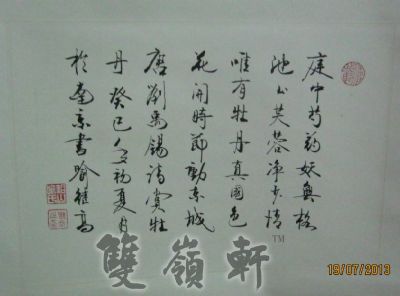 庭中芍药妖無格
池上芙蓉净少情
唯有牡丹真國色
花開時節動京城
唐劉禹錫詩賞牡
丹癸巳初夏月
於南京書喻继高
雙嶺軒
TM
19/07/2013